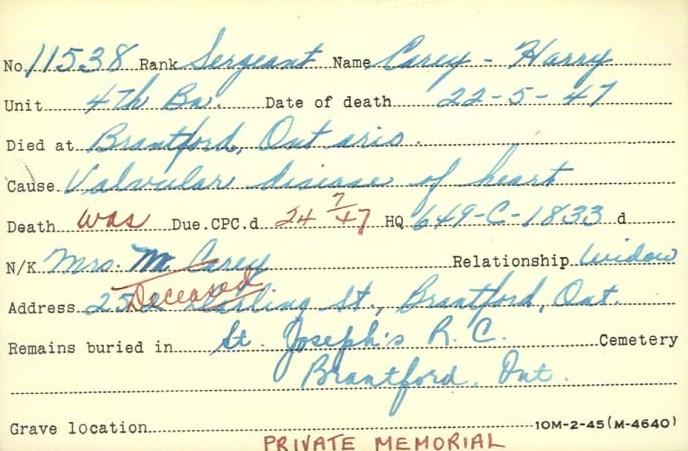 No. 11538 Rank Sergeant Name Carey - Harry
Unit 4th Bn. Date of death 22-5-47
Died at Brantford, Ontario.
Cause Valvular disease of heart
Death was Due. CPC.d 24/7/47 HQ 649-C-1833 d
N/K Mrs. M. Carey Relationship Widow
Deceased
Address Darling St., Brantford, Ont.
Remains buried in St. Joseph's R.C. Cemetery
Brantford, Ont.
Grave location 10M-2-45(M-4640)
PRIVATE MEMORIAL